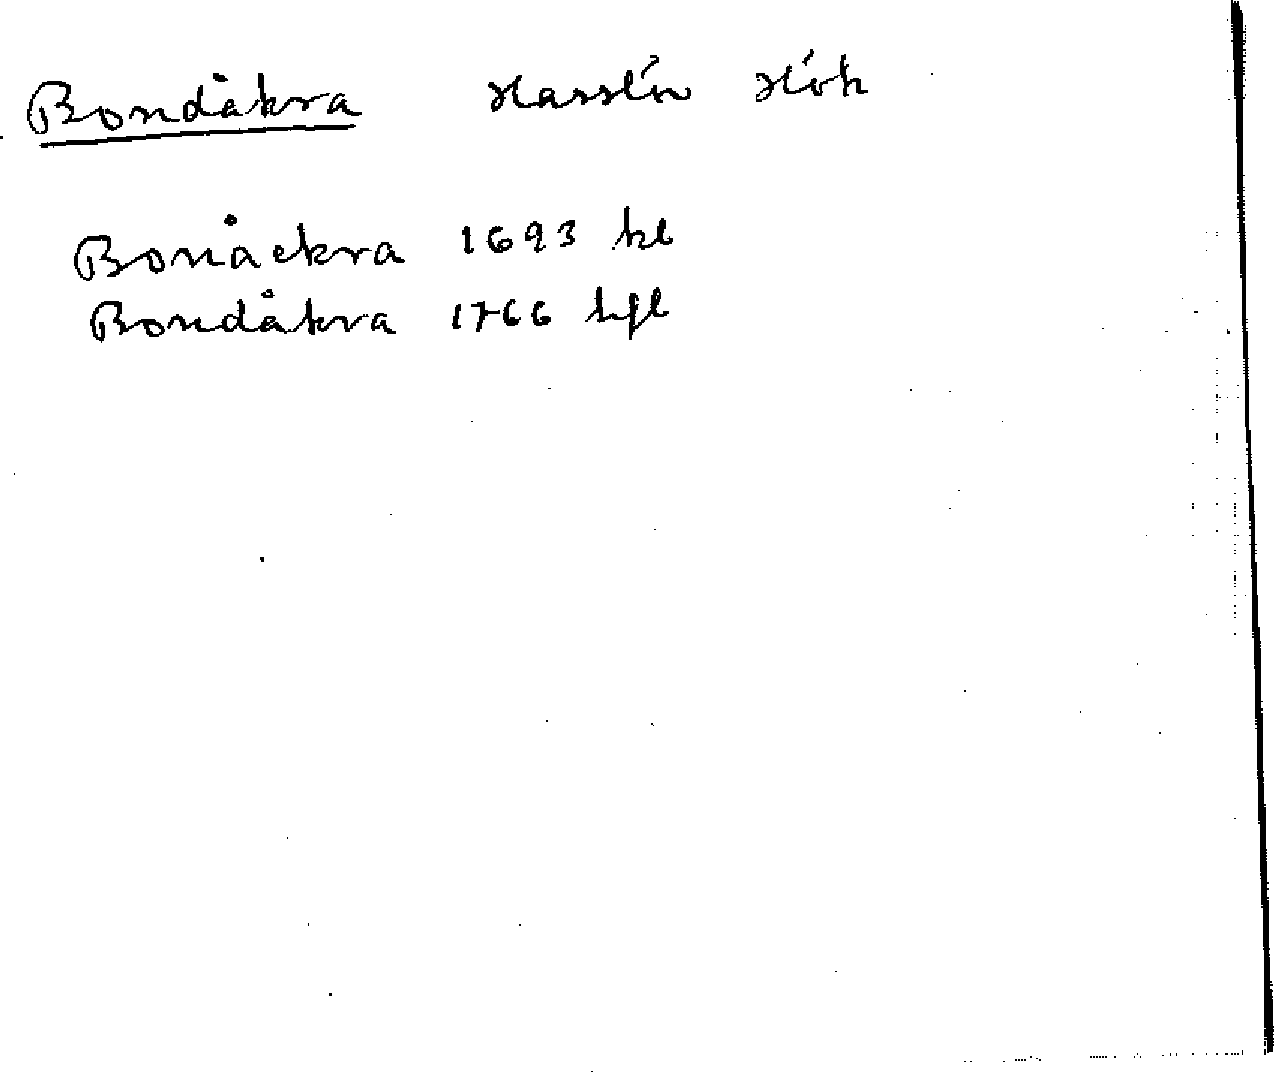 Bondåkra Hasslöv Hök
Bonåckra 1693 kl
Bondåkra 1766 hfl